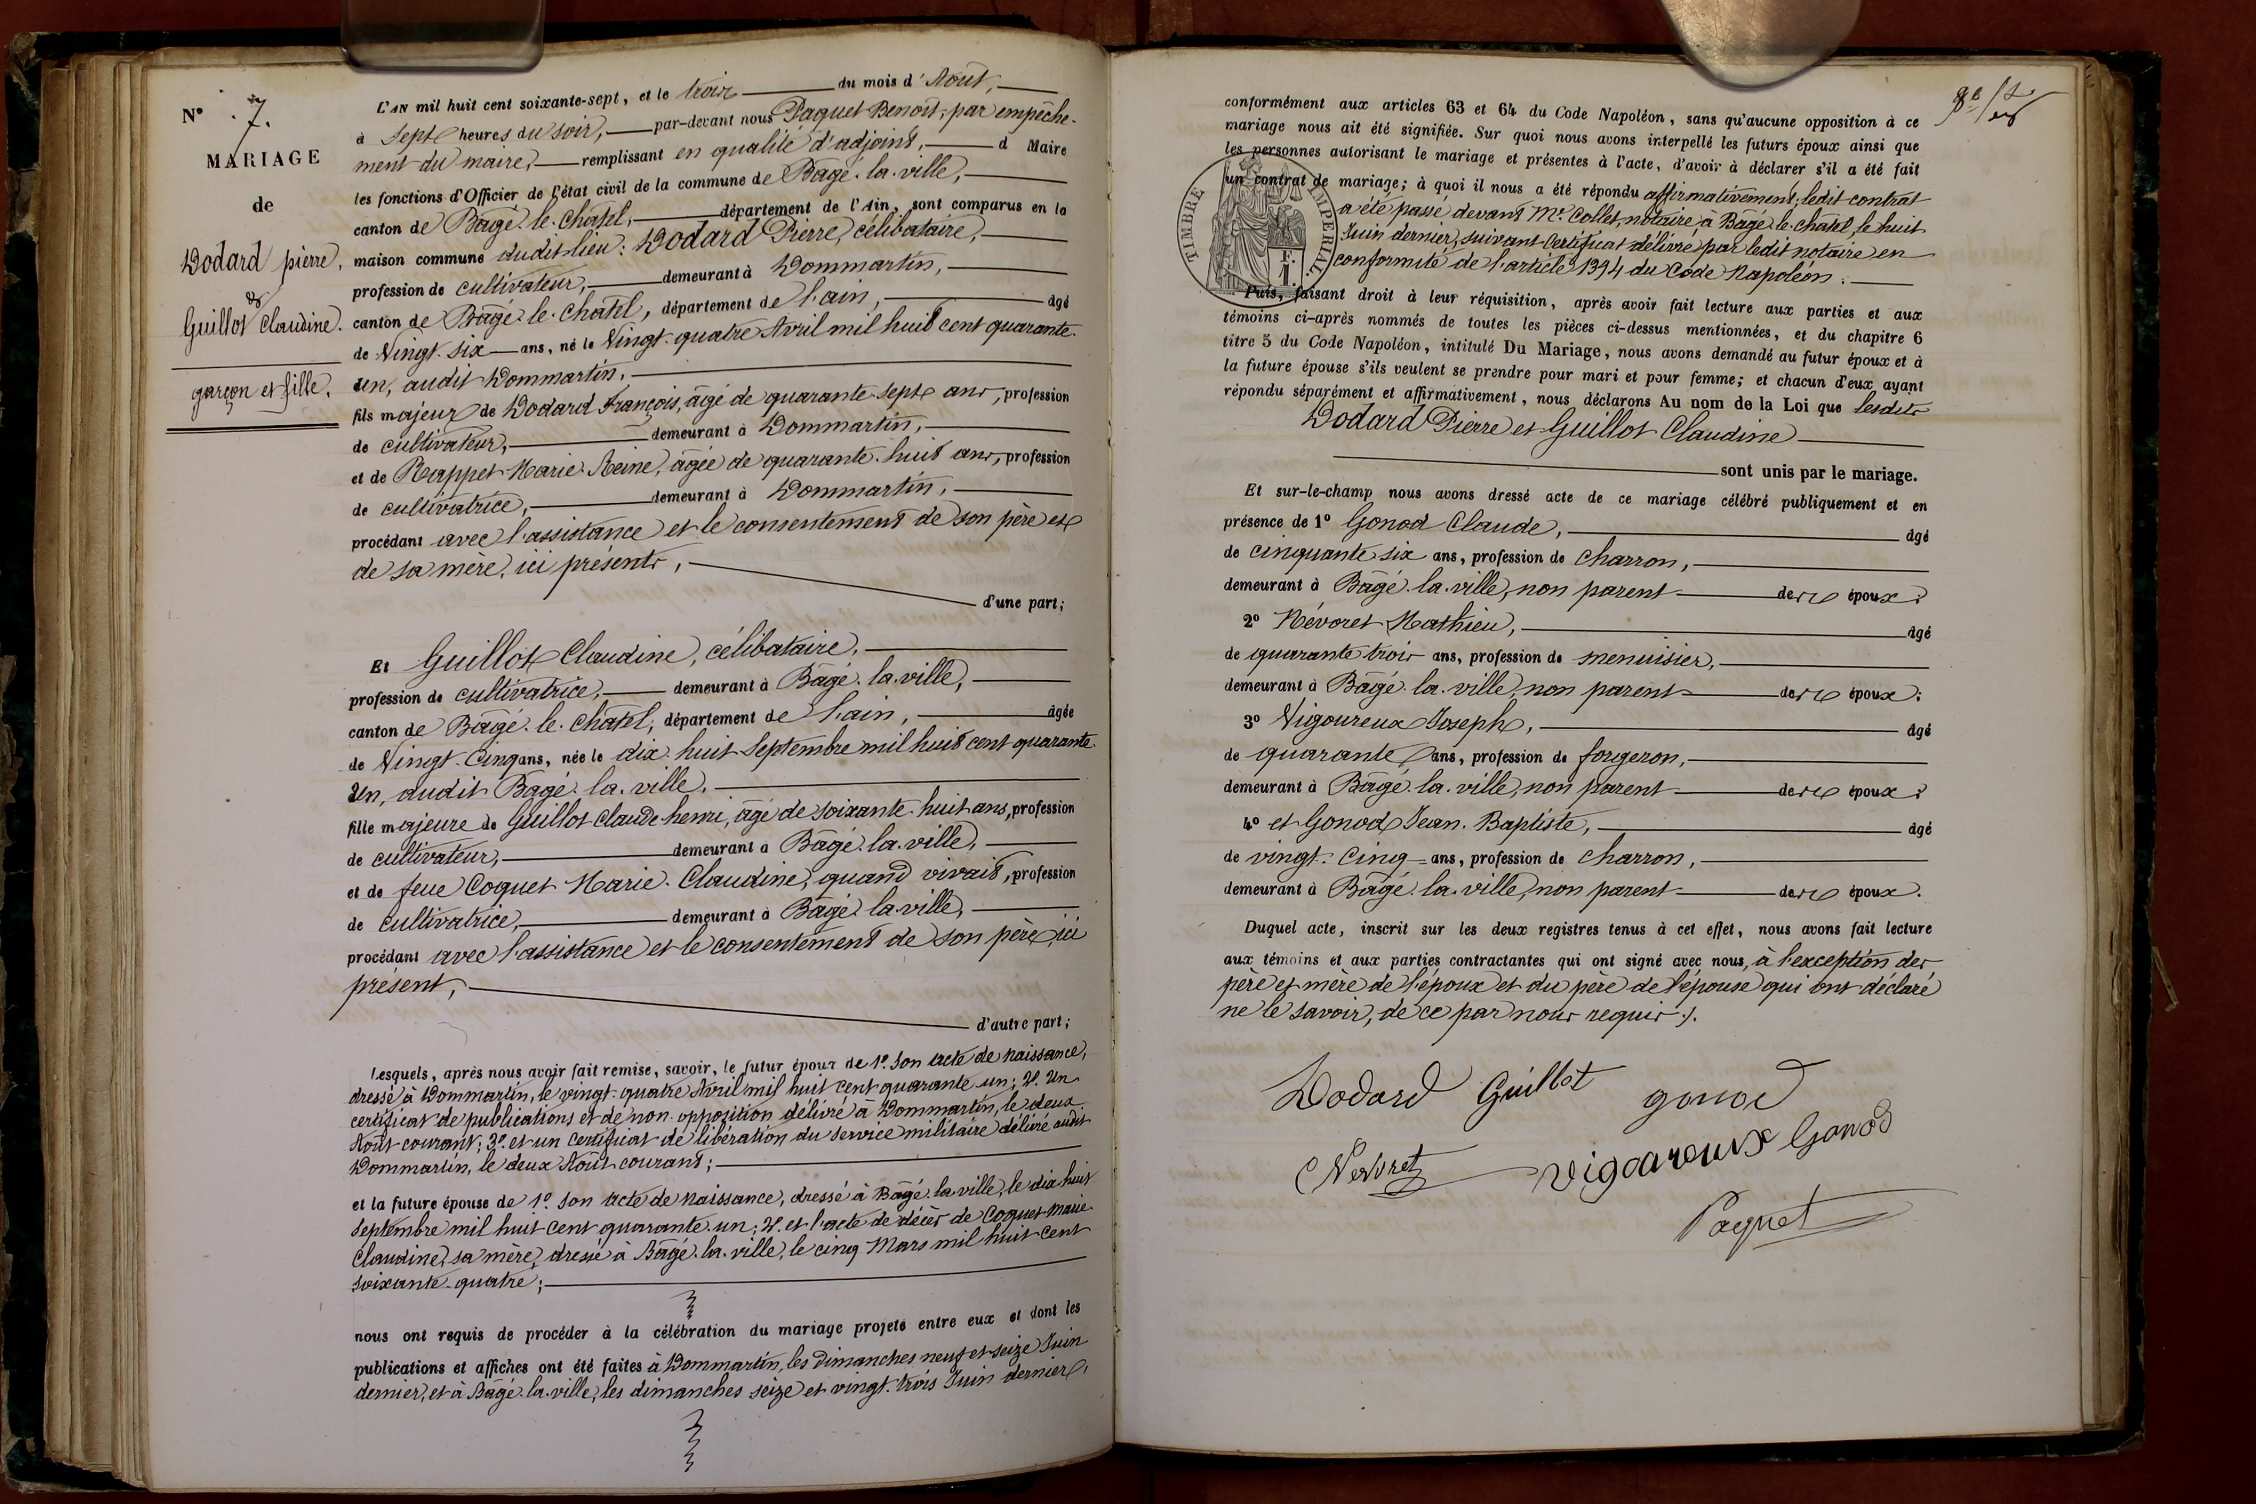 N° 7.
MARIAGE
de
Dodard pierre,
&
Guillot Claudine.
garçon et fille.
L'AN mil huit cent soixante-sept, et le trois du mois d'Août,
à Sept heures du soir, par-devant nous Paquet Benoît, par empêche-
ment du maire, remplissant en qualité d'adjoint, d Maire
les fonctions d'Officier de l'état civil de la commune de Bâgé-la-ville,
canton de Bâgé-le-Châtel, département de l'Ain, sont comparus en la
maison commune dudit lieu: Dodard Pierre, célibataire,
profession de cultivateur, demeurant à Dommartin,
canton de Bâgé-le-Châtel, département de l'ain, âgé
de Vingt-six ans, né le Vingt-quatre Avril mil huit cent quarante-
un, audit Dommartin,
fils majeur de Dodard François, âgé de quarante-sept ans, profession
de cultivateur, demeurant à Dommartin,
et de Rappet Marie-Reine, âgée de quarante-huit ans, profession
de cultivatrice, demeurant à Dommartin,
procédant avec l'assistance et le consentement de son père et
de sa mère, ici présents,
d'une part;
Et Guillot Claudine, célibataire,
profession de cultivatrice, demeurant à Bâgé-la-ville,
canton de Bâgé-le-Châtel, département de l'ain, âgée
de Vingt-Cinq ans, née le dix-huit Septembre mil huit cent quarante-
Un, audit Bâgé-la-ville,
fille majeure de Guillot Claude-henri, âgé de soixante-huit ans, profession
de cultivateur, demeurant à Bâgé-la-ville,
et de feue Coquet Marie-Claudine, quand vivait, profession
de cultivatrice, demeurant à Bâgé-la-ville,
procédant avec l'assistance et le consentement de son père, ici
présent,
d'autre part;
Lesquels, après nous avoir fait remise, savoir, le futur époux de 1° Son acte de naissance,
dressé à Dommartin, le vingt-quatre Avril mil huit cent quarante-un; 2° Un
certificat de publications et de non-opposition délivré à Dommartin, le deux
Août courant; 3° et un certificat de libération du service militaire délivré audit
Dommartin, le deux Août courant;
et la future épouse de 1° Son acte de naissance, dressé à Bâgé-la-ville, le dix huit
Septembre mil huit cent quarante-un; 2° et l'acte de décès de Coquet Marie-
Claudine, sa mère, dressé à Bâgé-la-ville, le cinq Mars mil huit cent
soixante-quatre;
nous ont requis de procéder à la célébration du mariage projeté entre eux et dont les
publications et affiches ont été faites à Dommartin, les Dimanches neuf et seize Juin
dernier, et à Bâgé-la-ville, les dimanches seize et vingt-trois Juin dernier,
conformément aux articles 63 et 64 du Code Napoléon, sans qu'aucune opposition à ce
mariage nous ait été signifiée. Sur quoi nous avons interpellé les futurs époux ainsi que
les personnes autorisant le mariage et présentes à l'acte, d'avoir à déclarer s'il a été fait
un contrat de mariage; à quoi il nous a été répondu affirmativement, ledit contrat
a été passé devant Mᵉ Collet, notaire à Bâgé-le-châtel, le huit
Juin dernier, suivant Certificat délivré par ledit notaire en
conformité de l'article 1394 du Code Napoléon.
TIMBRE IMPERIAL.
F.
1.
Puis, faisant droit à leur réquisition, après avoir fait lecture aux parties et aux
témoins ci-après nommés de toutes les pièces ci-dessus mentionnées, et du chapitre 6
titre 5 du Code Napoléon, intitulé Du Mariage, nous avons demandé au futur époux et à
la future épouse s'ils veulent se prendre pour mari et pour femme; et chacun d'eux ayant
répondu séparément et affirmativement, nous déclarons Au nom de la Loi que lesdits
Dodard Pierre et Guillot Claudine
sont unis par le mariage.
Et sur-le-champ nous avons dressé acte de ce mariage célébré publiquement et en
présence de 1° Gonod Claude, âgé
de cinquante-six ans, profession de charron,
demeurant à Bâgé-la-ville, non parent des époux;
2° Névoret Mathieu, âgé
de quarante-trois ans, profession de menuisier,
demeurant à Bâgé-la-ville, non parent des époux;
3° Vigoureux Joseph, âgé
de quarante ans, profession de forgeron,
demeurant à Bâgé-la-ville, non parent des époux;
4° et Gonod Jean-Baptiste, âgé
de vingt-Cinq ans, profession de charron,
demeurant à Bâgé-la-ville, non parent des époux.
Duquel acte, inscrit sur les deux registres tenus à cet effet, nous avons fait lecture
aux témoins et aux parties contractantes qui ont signé avec nous, à l'exception des
père et mère de l'époux et du père de l'épouse qui ont déclaré
ne le savoir, de ce par nous requis ./.
Dodard Guillot gonod
Nevoret Vigoureux Gonod
Paquet